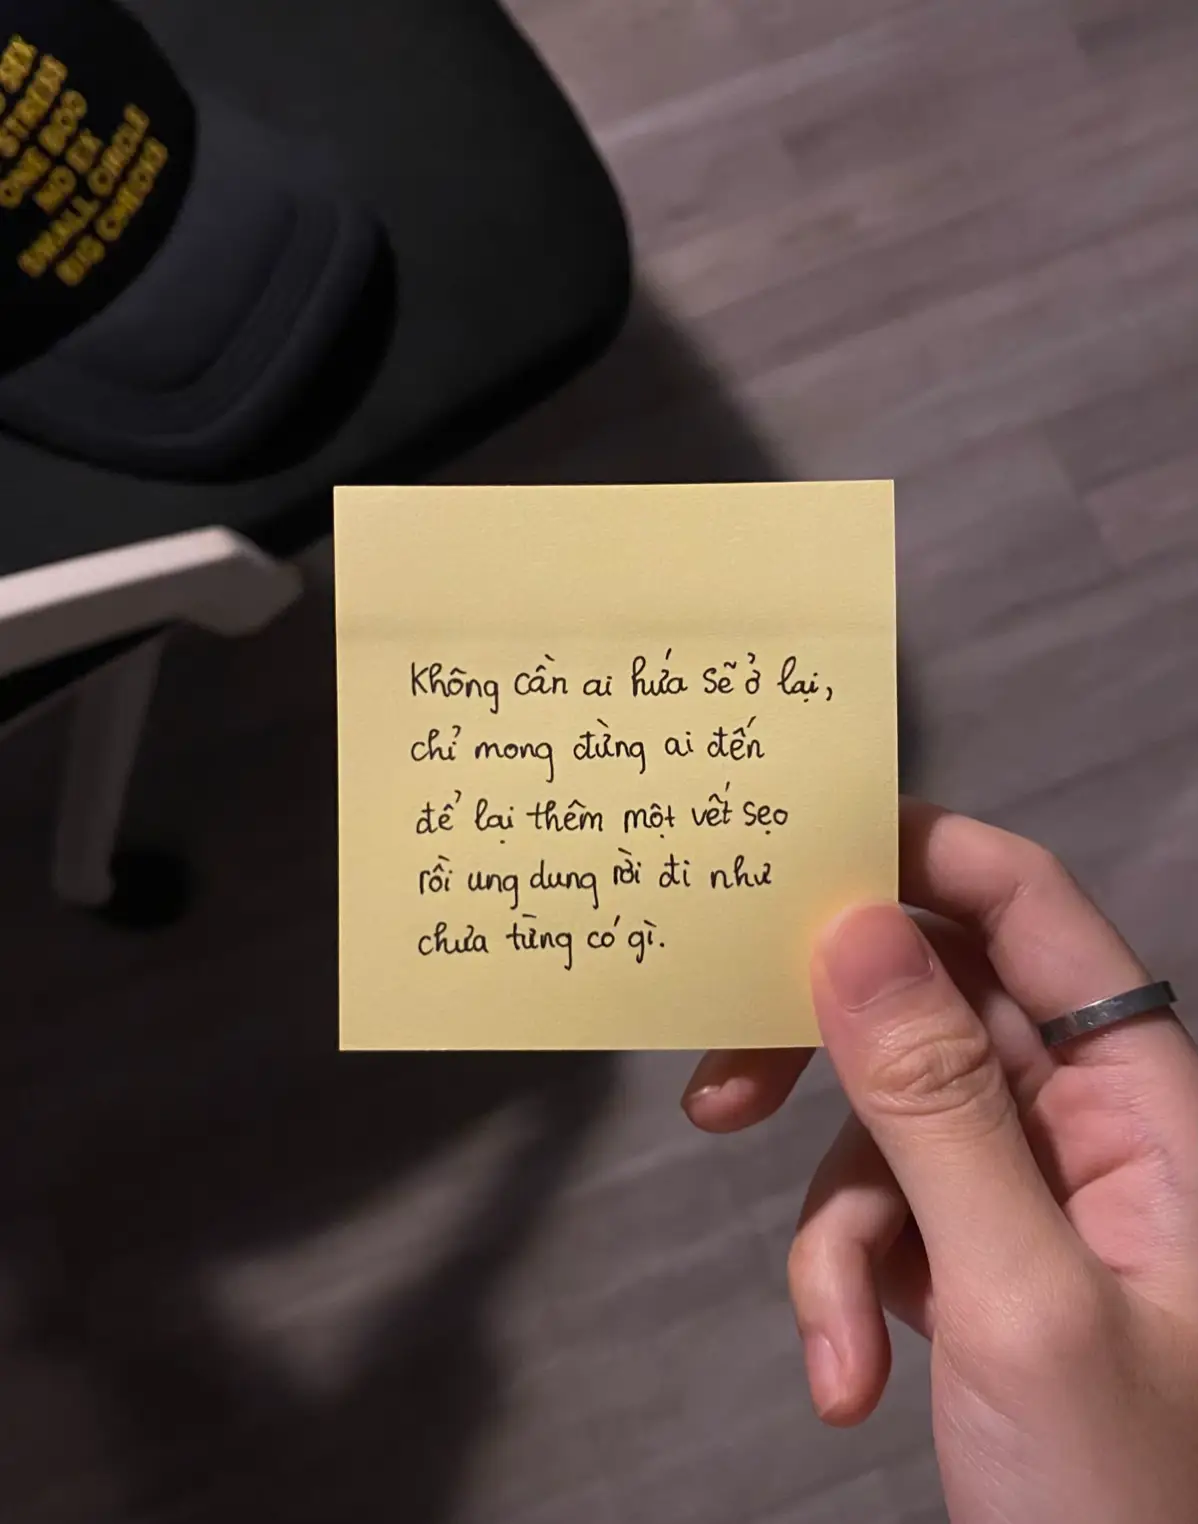 SEX
STRESS
ONE BOO
NO EX
SMALL CIRCLE
BIG CHECKS
Không cần ai hứa sẽ ở lại,
chỉ mong đừng ai đến
để lại thêm một vết sẹo
rồi ung dung rời đi như
chưa từng có gì.